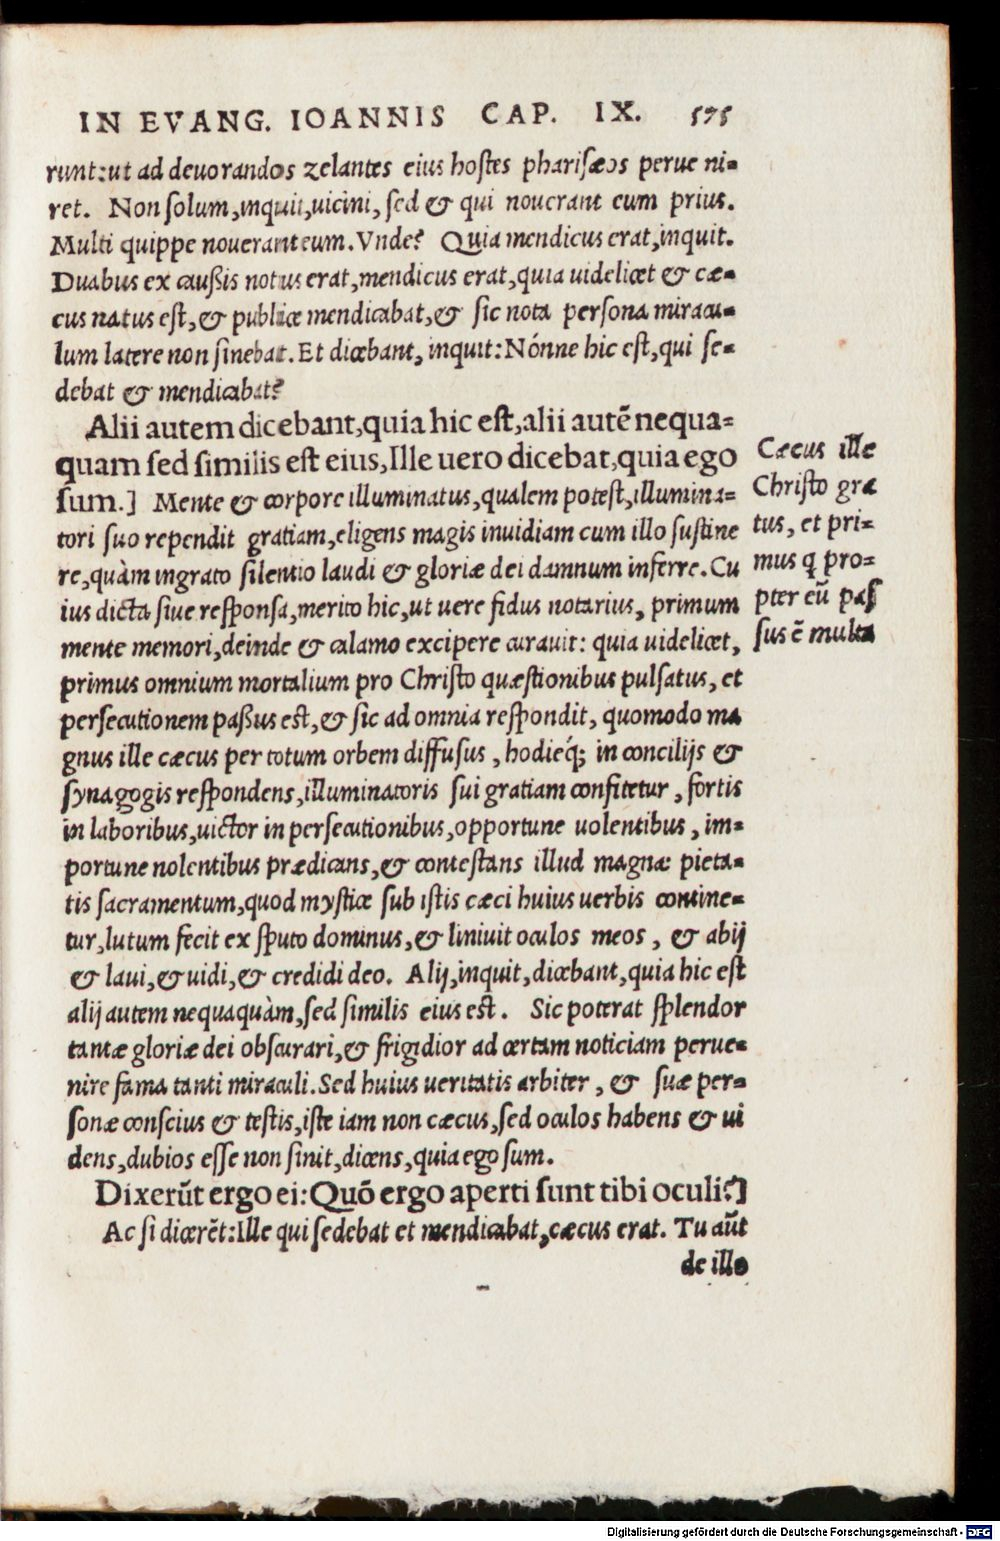 IN EVANG. IOANNIS CAP. IX. 575
runt:ut ad deuorandos zelantes eius hostes pharisæos perue ni-
ret. Non solum,inquit,uicini, sed & qui nouerant eum prius.
Multi quippe nouerant eum. Vnde? Quia mendicus erat,inquit.
Duabus ex caußis notus erat,mendicus erat,quia uidelicet & cæ-
cus natus est,& publice mendicabat,& sic nota persona miracu-
lum latere non sinebat. Et dicebant, inquit: Nónne hic est,qui se-
debat & mendicabat?
Alii autem dicebant,quia hic est,alii autẽ nequa-
quam sed similis est eius,Ille uero dicebat,quia ego
sum.] Mente & corpore illuminatus,qualem potest,illumina-
tori suo rependit gratiam,eligens magis inuidiam cum illo sustine
re,quàm ingrato silentio laudi & gloriæ dei damnum inferre. Cu
ius dicta siue responsa,merito hic,ut uere fidus notarius, primum
mente memori,deinde & calamo excipere curauit: quia uidelicet,
primus omnium mortalium pro Christo quæstionibus pulsatus, et
persecutionem paßus est,& sic ad omnia respondit, quomodo ma
gnus ille cæcus per totum orbem diffusus, hodieq́; in concilijs &
synagogis respondens,illuminatoris sui gratiam confitetur, fortis
in laboribus,uictor in persecutionibus,opportune uolentibus, im-
portune nolentibus prædicans,& contestans illud magnæ pieta-
tis sacramentum,quod mystice sub istis cæci huius uerbis contine-
tur,lutum fecit ex sputo dominus,& liniuit oculos meos, & abij
& laui,& uidi,& credidi deo. Alij,inquit,dicebant,quia hic est
alij autem nequaquàm,sed similis eius est. Sic poterat splendor
tantæ gloriæ dei obscurari,& frigidior ad certam noticiam perue-
nire fama tanti miraculi. Sed huius ueritatis arbiter, & suæ per-
sonæ conscius & testis,iste iam non cæcus,sed oculos habens & ui
dens,dubios esse non sinit,dicens,quia ego sum.
Dixerũt ergo ei: Quõ ergo aperti sunt tibi oculi?]
Ac si dicerẽt:Ille qui sedebat et mendicabat,cæcus erat. Tu aũt
de illo
Cæcus ille
Christo gra
tus, et pri-
mus q̃ pro-
pter eũ pas
sus ẽ multa
Digitalisierung gefördert durch die Deutsche Forschungsgemeinschaft - DFG